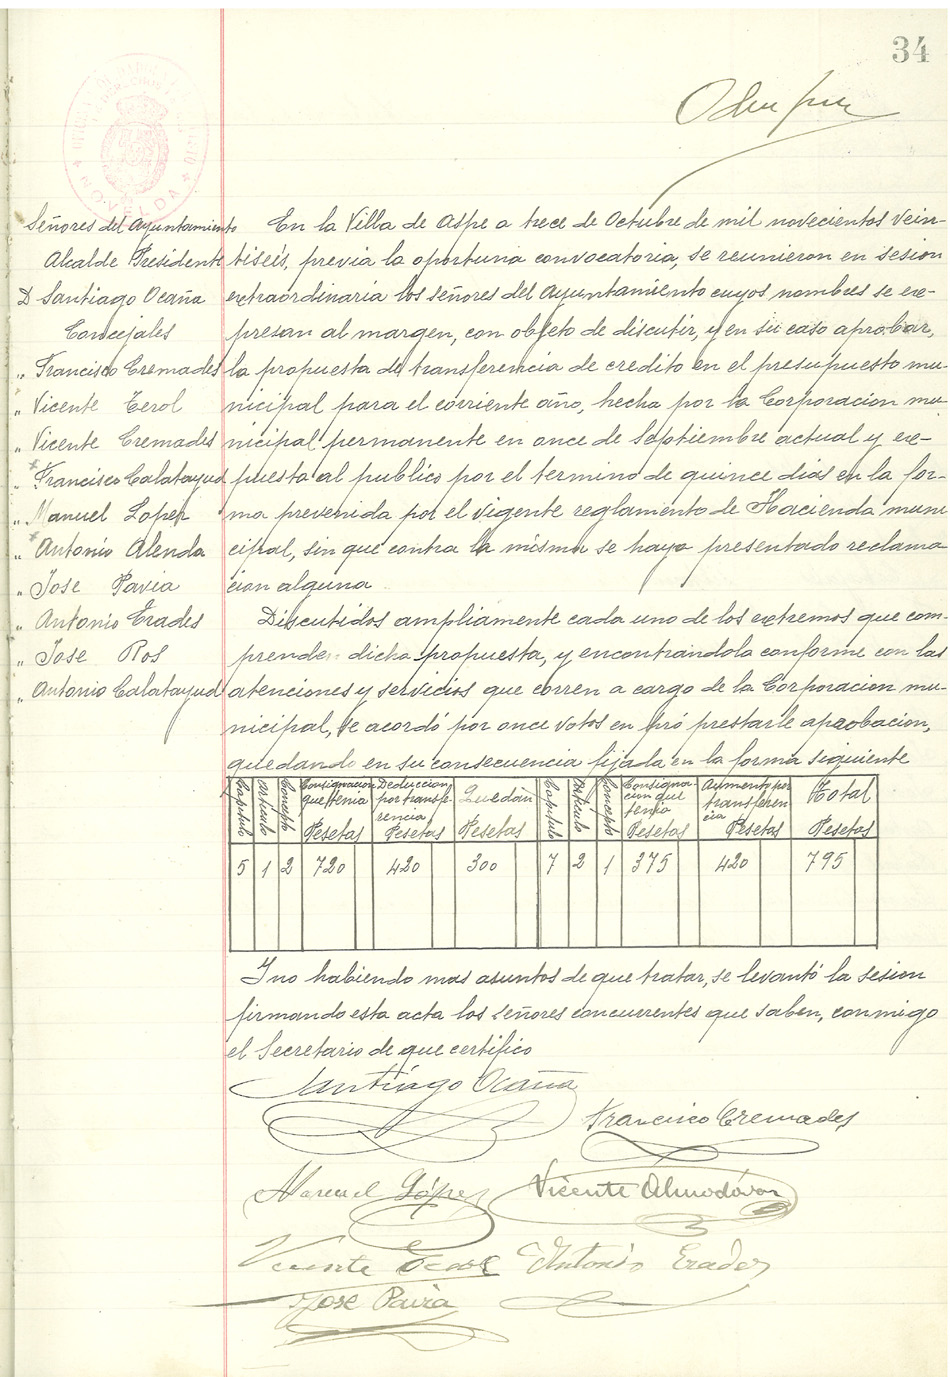 34
Señores del Ayuntamiento
Alcalde Presidente
D Santiago Ocaña
Concejales
" Francisco Cremades
" Vicente Cerol
" Vicente Cremades
" Francisco Calatayud
" Manuel Lopez
" Antonio Alenda
" Jose Pavia
" Antonio Erades
" Jose Ros
" Antonio Calatayud
En la Villa de Aspe a trece de Octubre de mil novecientos vein-
tiseis, previa la oportuna convocatoria, se reunieron en sesion
extraordinaria los señores del Ayuntamiento cuyos nombres se ex-
presan al margen, con objeto de discutir, y en su caso aprobar,
la propuesta de transferencia de credito en el presupuesto mu-
nicipal para el corriente año, hecha por la Corporacion mu-
nicipal permanente en once de Septiembre actual y ex-
puesta al publico por el termino de quince dias en la for-
ma prevenida por el vigente reglamento de Hacienda muni
cipal, sin que contra la misma se haya presentado reclama
cion alguna
Discutidos ampliamente cada uno de los extremos que com-
prende dicha propuesta, y encontrandola conforme con las
atenciones y servicios que corren a cargo de la Corporacion mu-
nicipal, se acordó por once votos en pró prestarle aprobacion,
quedando en su consecuencia fijada en la forma siguiente
Capitulo Articulo Concepto Consignacion que tenia Pesetas Deduccion por transferencia Pesetas Quedan Pesetas Capitulo Articulo Concepto Consignacion que tenia Pesetas Aumento por transferencia Pesetas Total Pesetas
5 1 2 720 420 300 7 2 1 375 420 795
Y no habiendo mas asuntos de que tratar, se levantó la sesion
firmando esta acta los señores concurrentes que saben, conmigo
el Secretario de que certifico
Santiago Ocaña
Francisco Cremades
Manuel López Vicente Almodóvar
Vicente Antonio Erades
Jose Pavia